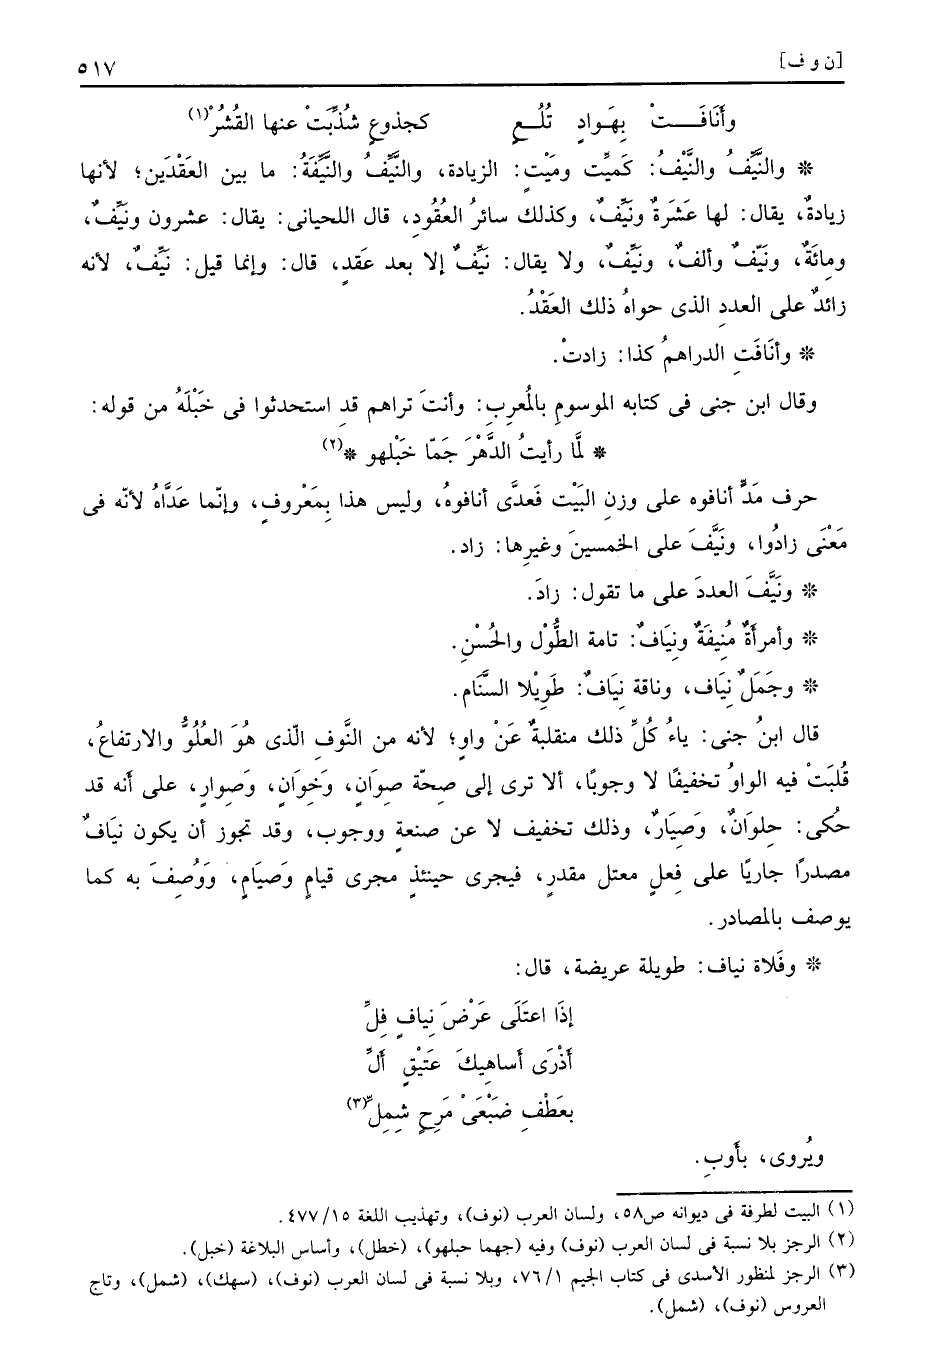 [ن و ف] ٥١٧
وأَنَافَـــتْ بِهَـوادٍ تُلُـعٍ كجذوعٍ شُذِّبَتْ عنها القُشُرْ(١)
* والنَّيِّفُ والنَّيْفُ: كَميِّت ومَيْت: الزيادة، والنَّيِّفُ والنَّيِّفَةُ: ما بين العَقْدَين؛ لأنها
زيادةٌ، يقال: لها عَشَرَةٌ ونَيِّفٌ، وكذلك سائرُ العُقُودِ، قال اللحيانى: يقال: عشرون ونَيِّفٌ،
ومائَةٌ، ونَيِّفٌ وألفٌ، ونَيِّفٌ، ولا يقال: نَيِّفٌ إلا بعد عَقدٍ، قال: وإنما قيل: نَيِّفٌ، لأنه
زائدٌ على العددِ الذى حواهُ ذلك العَقْدُ.
* وأنَافَتِ الدراهمُ كذا: زادتْ.
وقال ابن جنى فى كتابه الموسومِ بالمُعربِ: وأنتَ تراهم قد استحدثوا فى خَبْلَهُ من قوله:
* لمَّا رأيتُ الدَّهْرَ جَمّا خَبْلهو *(٢)
حرف مَدٍّ أنافوه على وزنِ البَيْت فَعدَّى أنافوهُ، وليس هذا بِمَعْروفٍ، وإنّما عَدَّاهُ لأنّه فى
مَعْنَى زادُوا، ونَيَّفَ على الخمسينَ وغيرِها: زاد.
* ونَيَّفَ العددَ على ما تقول: زادَ.
* وأمرأَةٌ مُنِيفَةٌ ونِيَافٌ: تامة الطُّوْل والحُسْنِ.
* وجَمَلٌ نِيَاف، وناقة نِيَافٌ: طَوِيْلا السَّنَام.
قال ابنُ جنى: ياءُ كُلِّ ذلك منقلبةٌ عَنْ واوٍ؛ لأنه من النَّوفِ الّذى هُوَ العُلُوُّ والارتفاعُ،
قُلبَتْ فيه الواوُ تخفيفًا لا وجوبًا، ألا ترى إلى صحّة صِوَانٍ، وَخِوَانٍ، وَصِوارٍ، على أنه قد
حُكى: حِلوَانٌ، وَصِيَارٌ، وذلك تخفيف لا عن صنعةٍ ووجوبٍ، وقد تجوز أن يكون نِيَافٌ
مصدرًا جاريًا على فِعلٍ معتل مقدرٍ، فيجرى حينئذٍ مجرى قيامٍ وَصيَامٍ، وَوُصِفَ به كما
يوصف بالمصادرِ.
* وفَلاة نياف: طويلة عريضة، قال:
إذَا اعتَلَى عَرْضَ نِيافٍ فِلِّ
أَذْرَى أساهِيكَ عَتيْقٍ أَلِّ
بعَطْفِ ضَبْعَىْ مَرِحٍ شِمِلِّ(٣)
ويُروى، بأَوبِ.
(١) البيت لطرفة فى ديوانه ص٥٨، ولسان العرب (نوف)، وتهذيب اللغة ٤٧٧/١٥.
(٢) الرجز بلا نسبة فى لسان العرب (نوف) وفيه (جهما حبلهو)، (خطل)، وأساس البلاغة (خبل).
(٣) الرجز لمنظور الأسدى فى كتاب الجيم ٧٦/١، وبلا نسبة فى لسان العرب (نوف)، (سهك)، (شمل)، وتاج
العروس (نوف)، (شمل).